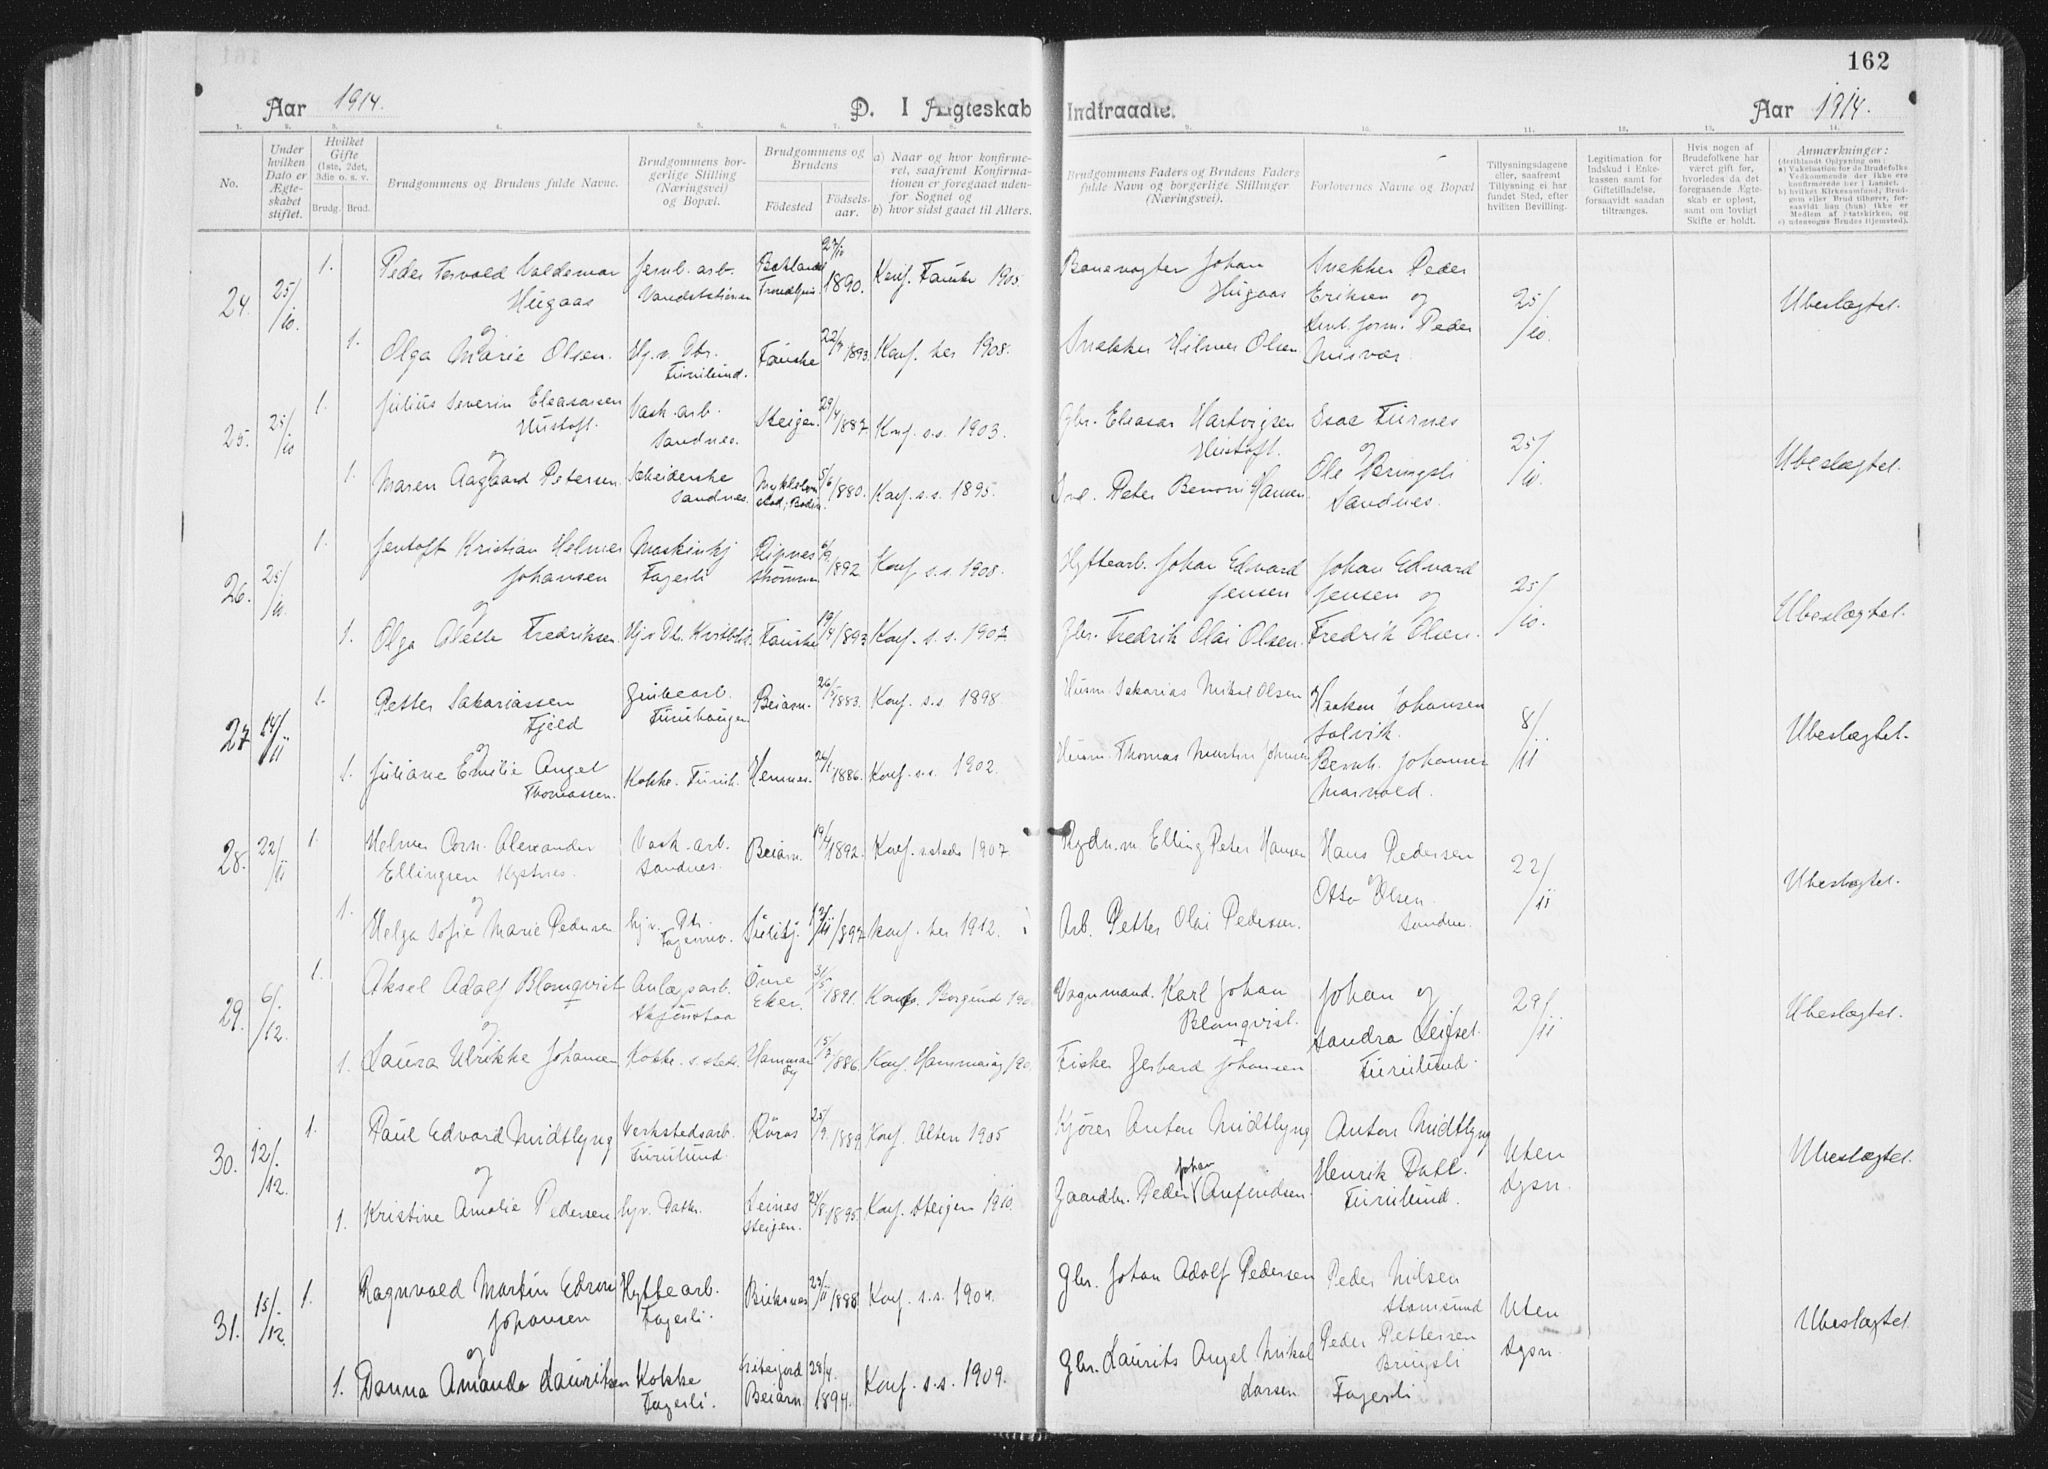 162
Aar 1914.
D. I Ægteskab Indtraadte.
Aar 1914.
1. 2. 3. 4. 5. 6. 7. 8. 9. 10. 11. 12. 13. 14.
No.
Under hvilken Dato er Ægteskabet stiftet.
Hvilket Gifte (1ste, 2det, 3die o. s. v.
Brudg. Brud.
Brudgommens og Brudens fulde Navne.
Brudgommens borgerlige Stilling (Næringsvei) og Bopæl.
Brudgommens og Brudens
Fødested Fødselsaar.
a) Naar og hvor konfirmeret, saafremt Konfirmationen er foregaaet udenfor Sognet og
b) hvor sidst gaaet til Alters.
Brudgommens Faders og Brudens Faders fulde Navn og borgerlige Stillinger (Næringsvei).
Forlovernes Navne og Bopæl
Tillysningsdagene eller, saafremt Tillysning ei har fundet Sted, efter hvilken Bevilling.
Legitimation for Indskud i Enkekassen samt for Giftetilladelse, forsaavidt saadan tiltrænges.
Hvis nogen af Brudefolkene har været gift før, hvorledes da det foregaaende Ægteskab er opløst, samt om lovligt Skifte er holdt.
Anmærkninger:
24. 25/10. 1. Peder Torvald Valdemar Hugaas Jernb. arb. 27/10 1890. Konf. Fauske 1905. Banevogter Johan Hugaas Snekker Peder Eriksen og 25/10. Ubeslægtet.
og
1. Olga Marie Olsen. Hj. v. Dtr. Furulund. Fauske 22/7 1893. Konf. her 1908. Snekker Hilmer Olsen Peder Misvær.
25. 25/10 1. Julius Severin Eleasarsen Hustoft. Vask. arb. Sandnes. Steigen. 29/4 1887. Konf. s.s. 1903. Gbr. Eleasar Hartvigsen Hustoft. Esae Furnes og 25/10. Ubeslægtet.
og
1. Maren Aagaard Petersen. Sandnes. 5/6 1880. Konf. s.s. 1895. Peter Benoni Hansen Ole Bringsli Sandnes.
26. 25/10 1. Jentoft Kristian Helmer Johansen Maskinkj Fagerli 6/9 1892. Konf. s.s. 1908. Hyttearb. Johan Edvard Jensen Johan Edvard Jensen og 25/10. Ubeslægtet.
og
1. Olga Fredriksen. Fauske 19/4 1893 Konf. s.s. 1907 Gbr. Fredrik Olai Olsen. Fredrik Olsen.
27 14/11 1. Petter Sakariassen Fjeld Grubearb. Furuhaugen Beiarn. 26/5 1883. Konf. s.s. 1898. Husm. Sakarias Mikal Olsen Haakon Johansen Solvik. 8/11 Ubeslægtet.
og
1. Juliane Emilie Angel Thomassen. Kokke. Furuh. Hemnes. 26/1 1886. Konf. s.s. 1902. Husm. Thomas Martin Johnsen Bernh. Johansen Marvold.
28. 22/11 1. Helmer Corn. Alexander Ellingsen Kystnes. Vask. arb. Sandnes. Beiarn. 19/4 1892. Konf. s.steds 1907. Rydn.m. Elling Peter Hansen Hans Pedersen 22/11 Ubeslægtet.
og
1. Helga Sofie Marie Pedersen hj. v. Dtr. Sulitj. 1897 Konf. her 1912. Arb. Petter Olai Pedersen. og Otto Olsen. Sandnes.
29. 6/12. 1. Aksel Adolf Blomqvist Anlægsarb. Øvre Eker. 31/5 1891. Konf. Borgund Vognmand. Karl Johan Blomqvist. Johan og Sandra Leifset. Furulund. 29/11 Ubeslægtet.
og
1. Laura Ulrikke Johansen Kokke s. steds. Hammarøy 15/3 1886. Konf. Hammarøy Fisker Gerhard Johansen
30. 12/12. 1. Paul Edvard Midtlyng Verkstedsarb. Furulund. Røros 25/9. 1889. Konf. Alten 1905 Kjører Anton Midtlyng Anton Midtlyng Uten lysn. Ubeslægtet.
og
1. Kristine Amalie Pedersen. hj. v. Datter. Leines Steigen. 24/8 1895. Konf. Steigen 1910. Gaardbr. Peder Johan Anfindsen. Henrik Dahl. Furulund.
31. 15/12. 1. Ragnvald Martin Edvin Johansen Hyttearb. Fagerli. 23/11 1888 Konf. s.s. 1904. Gbr. Johan Adolf Pedersen Peder Nilsen Stamsund Uten lysn. Ubeslægtet.
og
1. Danna Amanda Lauritsen Kokke Fagerli. Beiarn. 28/4. 1894. Konf. s.s. 1909. Gbr. Laurits Angel Mikal Larsen Peder Pettersen Bringsli Fagerli